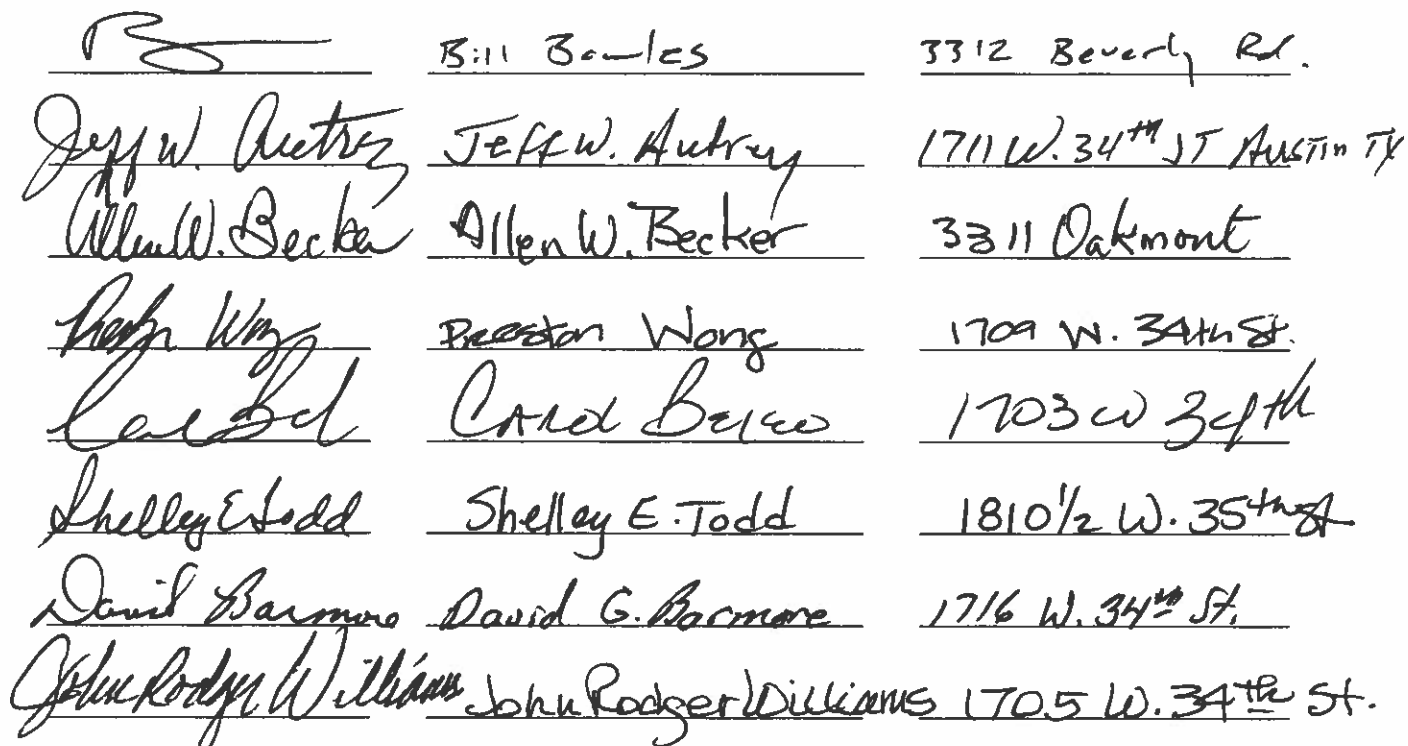 Bill Bowles 3312 Beverly Rd.
Jeff W. Autrey Jeff W. Autrey 1711 W. 34th ST Austin TX
Allen W. Becker Allen W. Becker 3311 Oakmont
Preston Wong Preston Wong 1709 W. 34th St.
Carol 1703 W 34th
Shelley E Todd Shelley E. Todd 1810 1/2 W. 35th St
David Barmore David G. Barmore 1716 W. 34th St.
John Rodger Williams John Rodger Williams 1705 W. 34th St.